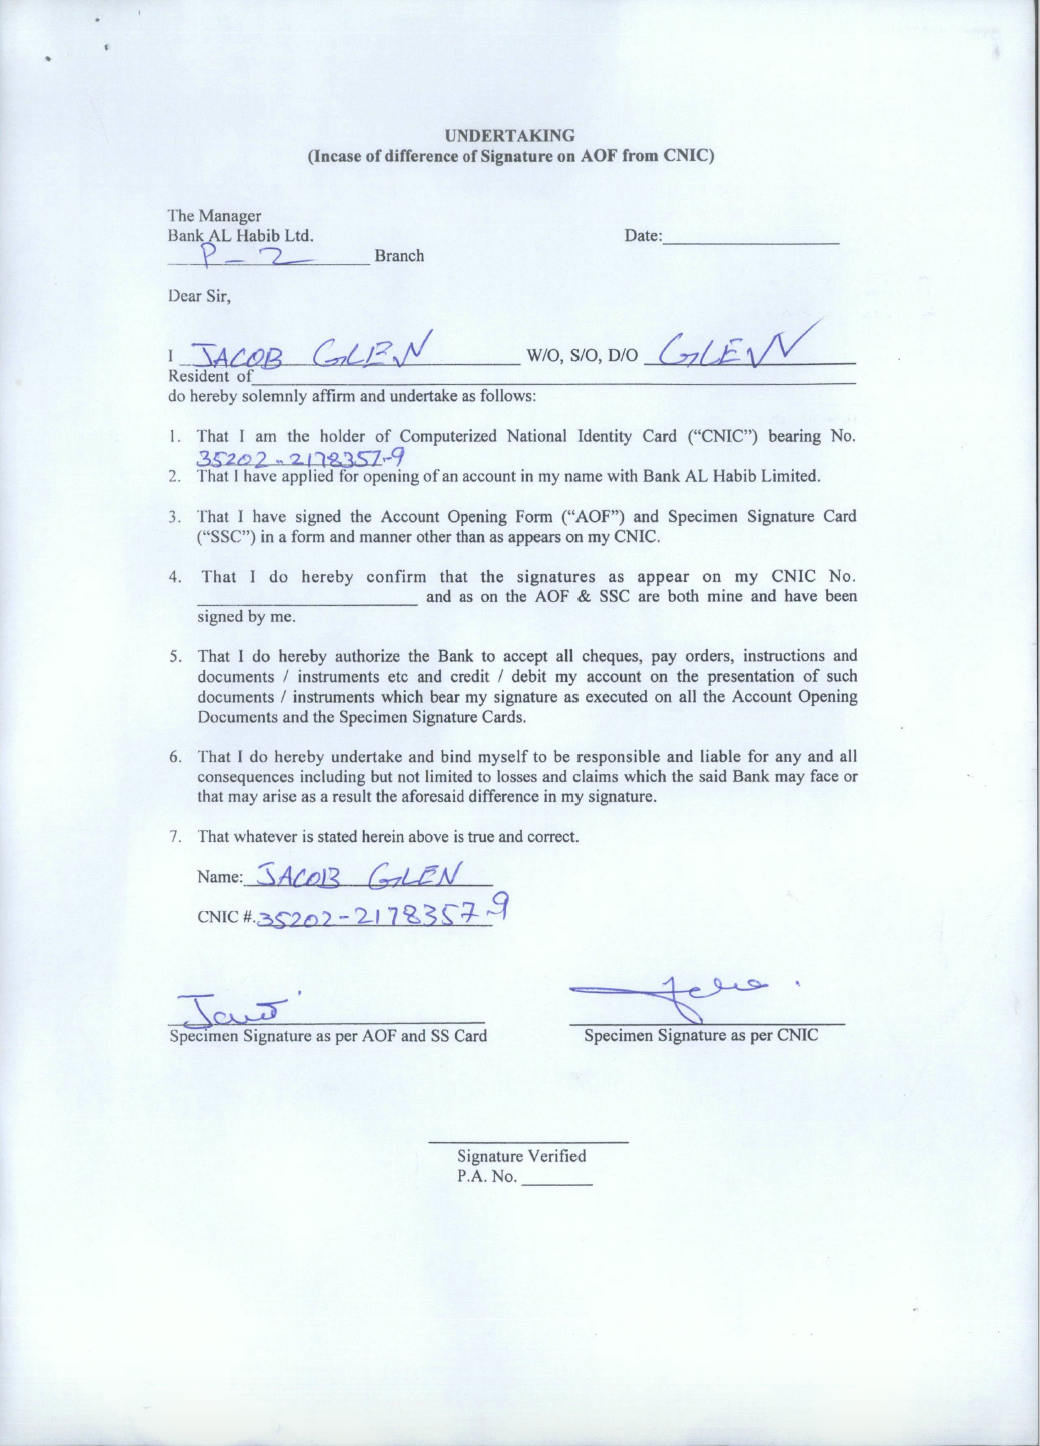 UNDERTAKING
(Incase of difference of Signature on AOF from CNIC)
The Manager
Bank AL Habib Ltd.
Date:
P-2 Branch
Dear Sir,
I JACOB GLEN W/O, S/O, D/O GLENN
Resident of
do hereby solemnly affirm and undertake as follows:
1. That I am the holder of Computerized National Identity Card (“CNIC”) bearing No.
35202-2178357-9
2. That I have applied for opening of an account in my name with Bank AL Habib Limited.
3. That I have signed the Account Opening Form (“AOF”) and Specimen Signature Card
(“SSC”) in a form and manner other than as appears on my CNIC.
4. That I do hereby confirm that the signatures as appear on my CNIC No.
and as on the AOF & SSC are both mine and have been
signed by me.
5. That I do hereby authorize the Bank to accept all cheques, pay orders, instructions and
documents / instruments etc and credit / debit my account on the presentation of such
documents / instruments which bear my signature as executed on all the Account Opening
Documents and the Specimen Signature Cards.
6. That I do hereby undertake and bind myself to be responsible and liable for any and all
consequences including but not limited to losses and claims which the said Bank may face or
that may arise as a result the aforesaid difference in my signature.
7. That whatever is stated herein above is true and correct.
Name: JACOB GLEN
CNIC #. 35202-2178357-9
Specimen Signature as per AOF and SS Card
Specimen Signature as per CNIC
Signature Verified
P.A. No.